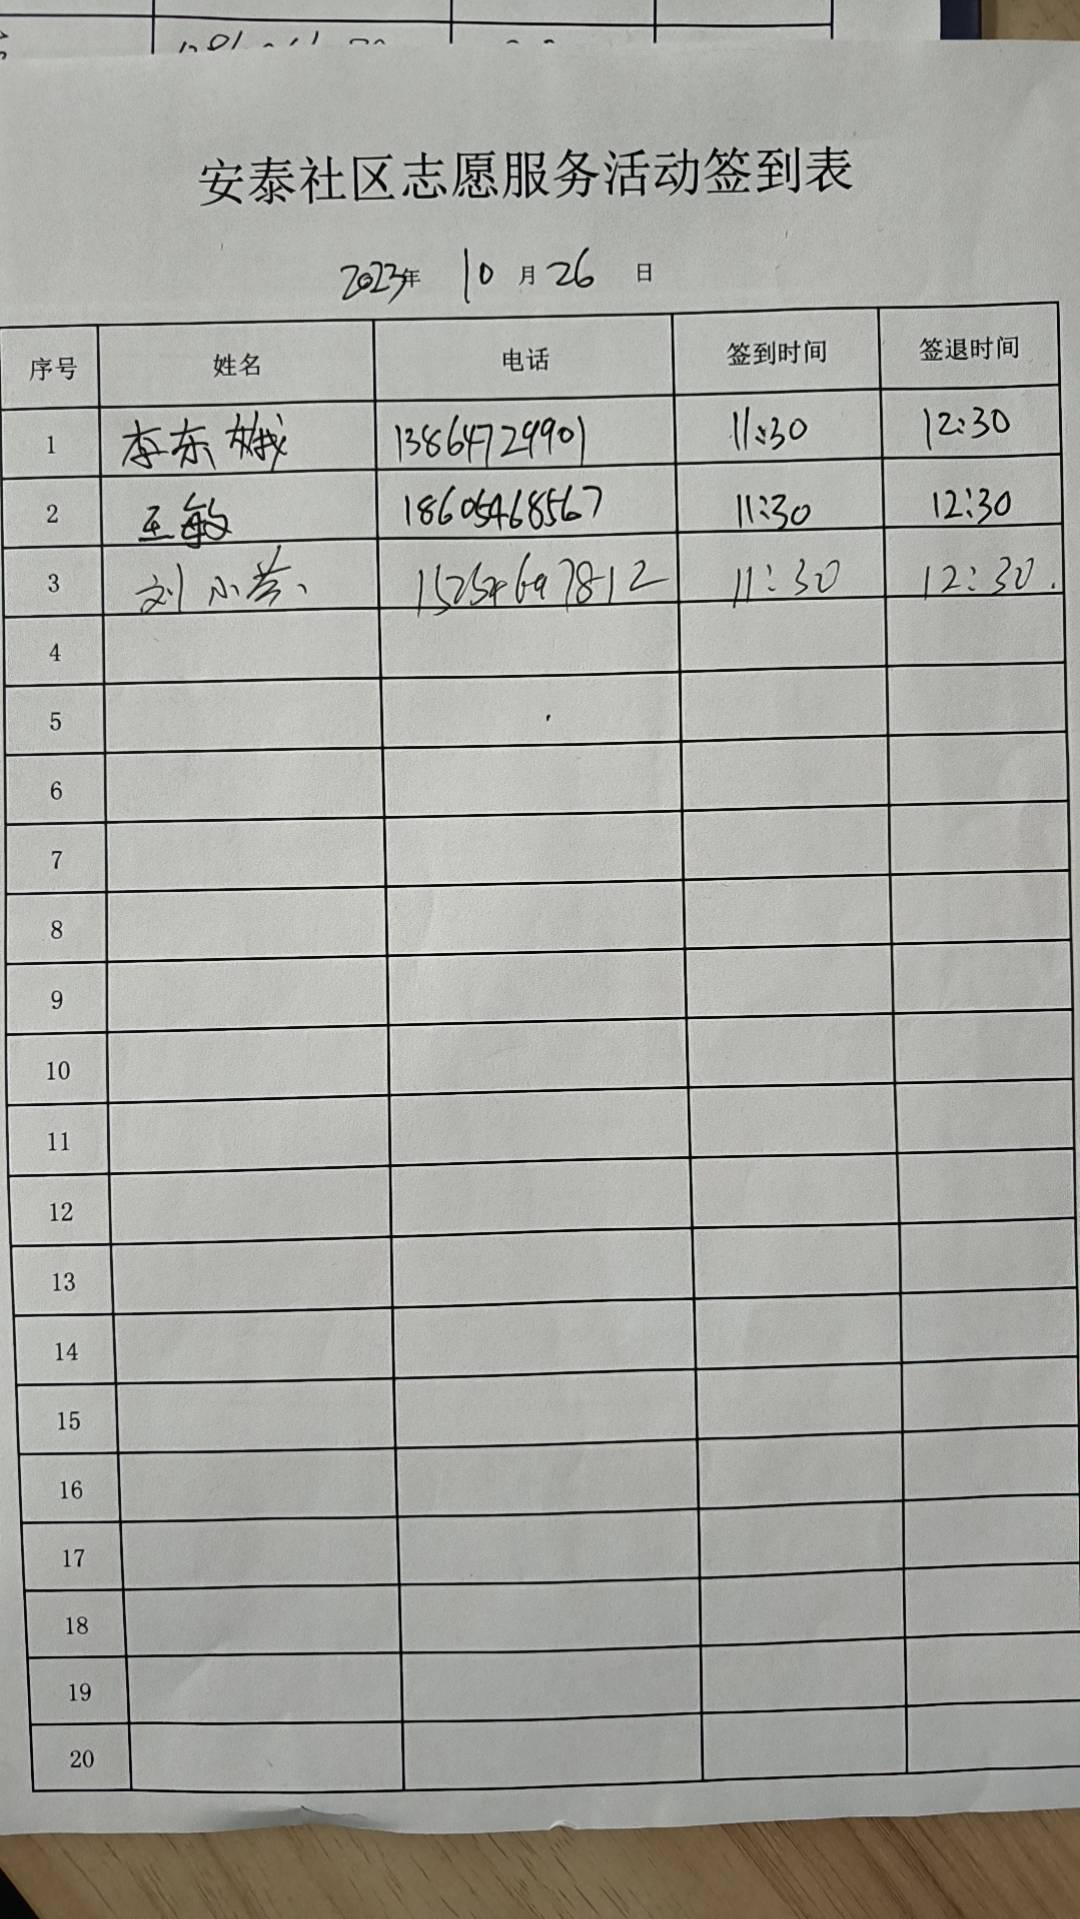 安泰社区志愿服务活动签到表
2023年 10 月 26 日
序号 姓名 电话 签到时间 签退时间
1 李东娥 13864729901 11:30 12:30
2 王敏 18605468567 11:30 12:30
3 刘小 11:30 12:30.
4
5
6
7
8
9
10
11
12
13
14
15
16
17
18
19
20